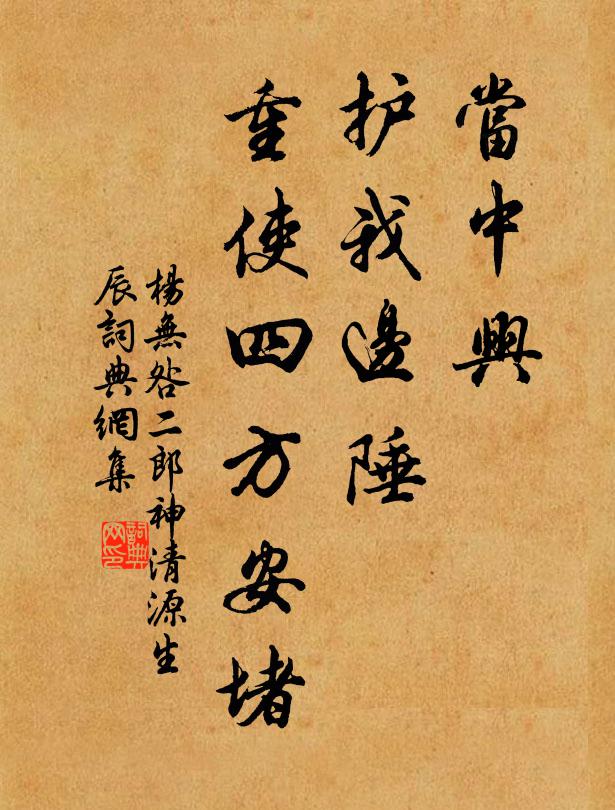 當中興
护我邊陲
重使四方安堵
楊無咎二郎神清源生
辰詞典網集
詞典网印